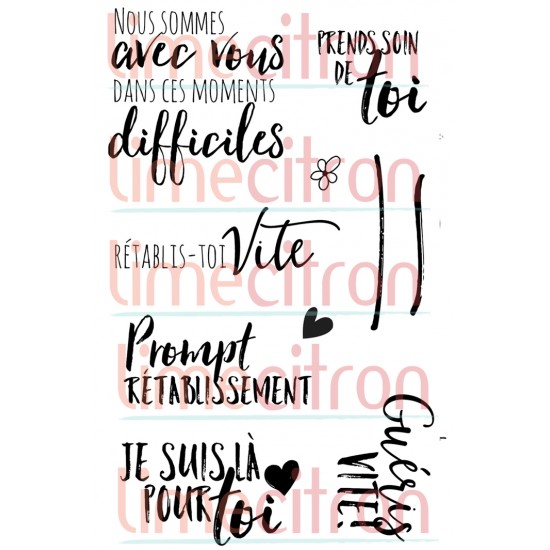 Nous sommes
avec vous
dans ces moments
difficiles
Prends soin
de
toi
Rétablis-toi Vite
Prompt
rétablissement
Je suis là
pour toi
Guéris
vite!
limecitron
limecitron
limecitron
limecitron
limecitron